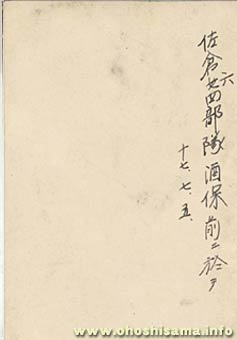 佐倉六廿四部隊酒保前ニ於テ
十七、七、五、
www.ohoshisama.info